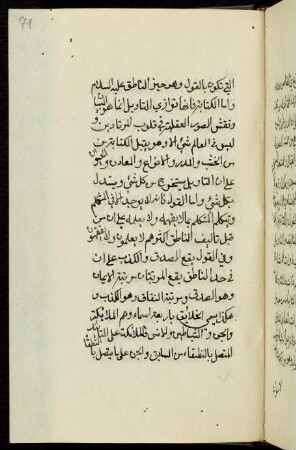 71
التي تكون بالقول وهو حيز الناطق عليه السلام
واما الكتابة فانها توازي التاويل انما هو البيان
ونقش الصور العقلية في قلوب المرتادين و
ليس في العالم شيء الا وهو يقبل الكتابة من
من الخشب والمدر والاصداع والمعادن والحيوان
على ان التاويل يستخرج من كل شيء ويستدل
بكل شيء واما القول فانه لا يوجد الا في المتكلم
ويتكلم المتكلم بما لا يفهمه ولا يعلمه على ان من
قبل تاليف الناطق اكثرهم لا يعلمون ولا يفقهون
وفي القول يقع الصدق والكذب على ان
في حد الناطق يقع المرتبتان مرتبة الايمان
وهو الصدق ومرتبة النفاق وهو الكذب و
هكذا سمى الخلائق باربعة اسماء وهم الملائكة
والجن والشياطين والانس فالملائكة على التاييد
المتصل بالنطقاء من السابق والجن على ما يتصل با